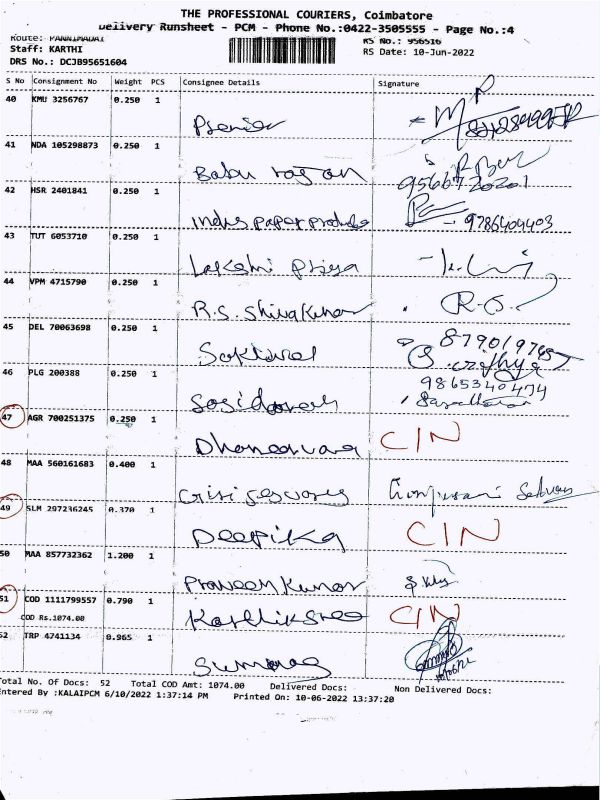 THE PROFESSIONAL COURIERS, Coimbatore
Delivery Runsheet - PCM - Phone No.:0422-3505555 - Page No.:4
Route: PANNIMADAI RS No.: 956516
Staff: KARTHI RS Date: 10-Jun-2022
DRS No.: DCJB95651604
S No Consignment No Weight PCS Consignee Details Signature
40 KMU 3256767 0.250 1
Premier
41 NDA 105298873 0.250 1
Babu rajan 9566720201
42 HSR 2401841 0.250 1
Indus paper products 9786409403
43 TUT 6053710 0.250 1
Lakshmi Priya
44 VPM 4715790 0.250 1
R.S. Shiva kumar R.S.
45 DEL 70063698 0.250 1
Sakthivel
46 PLG 200388 0.250 1 9865340474
Sasidaran
47 AGR 700251375 0.250 1
Dhaneswara CIN
48 MAA 560161683 0.400 1
Giri Jeswary
49 SLM 297236245 0.370 1
Deepika CIN
50 MAA 857732362 1.200 1
Praveen Kumar
51 COD 1111799557 0.790 1
COD Rs.1074.00 Karthiksree CIN
52 TRP 4741134 0.965 1
Sumarag
Total No. Of Docs: 52 Total COD Amt: 1074.00 Delivered Docs: Non Delivered Docs:
Entered By :KALAIPCM 6/10/2022 1:37:14 PM Printed On: 10-06-2022 13:37:20